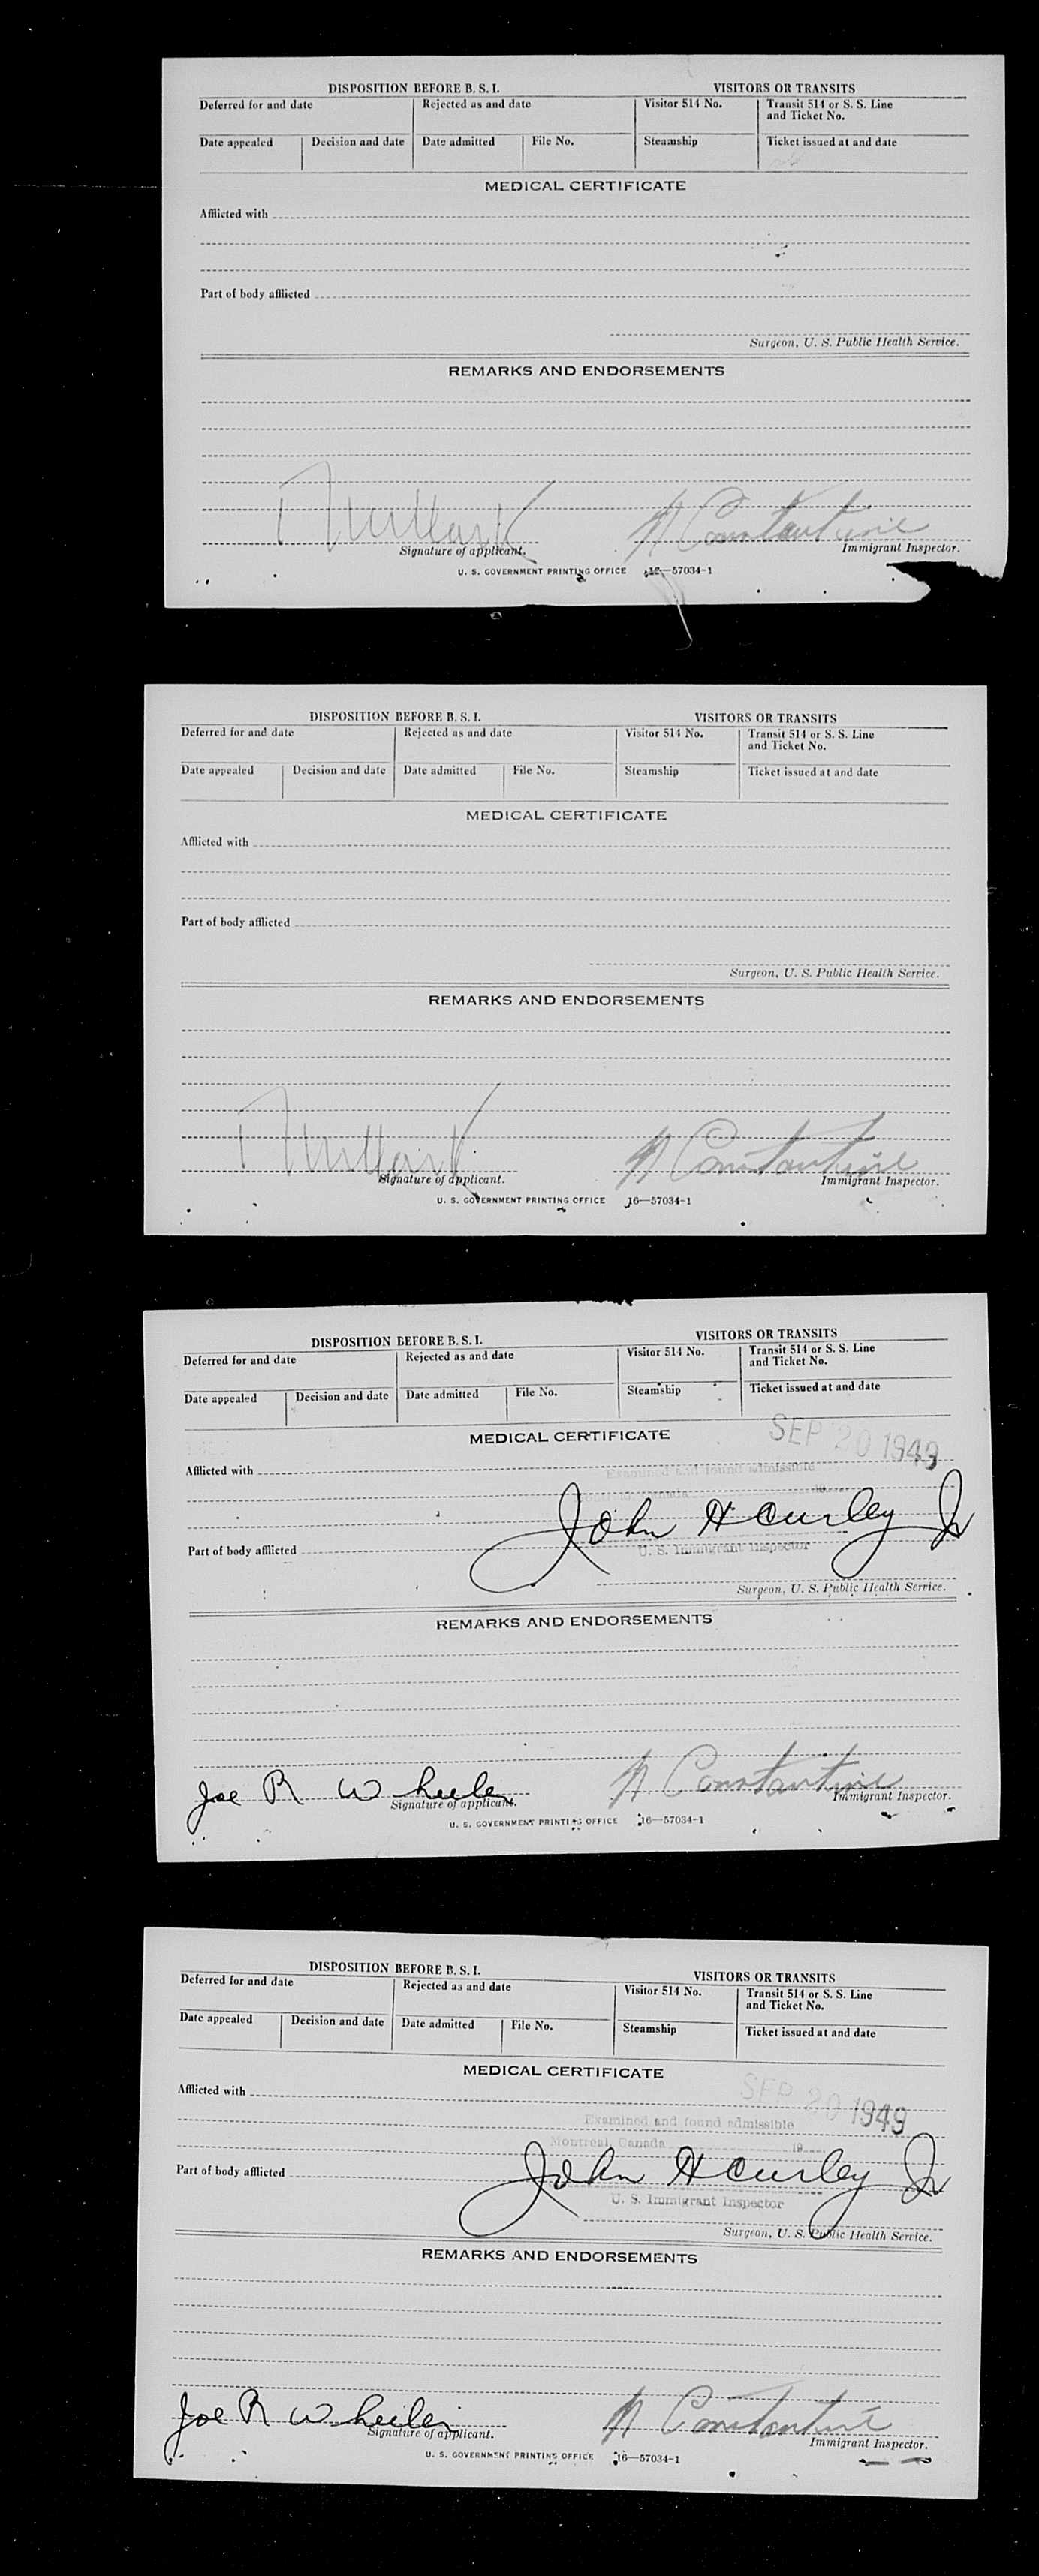 DISPOSITION BEFORE B. S. I. VISITORS OR TRANSITS
Deferred for and date Rejected as and date Visitor 514 No. Transit 514 or S. S. Line and Ticket No.
Date appealed Decision and date Date admitted File No. Steamship Ticket issued at and date
MEDICAL CERTIFICATE
Afflicted with
Part of body afflicted
Surgeon, U. S. Public Health Service.
REMARKS AND ENDORSEMENTS
N Constantine
Signature of applicant. Immigrant Inspector.
U. S. GOVERNMENT PRINTING OFFICE 16—57034-1
DISPOSITION BEFORE B. S. I. VISITORS OR TRANSITS
Deferred for and date Rejected as and date Visitor 514 No. Transit 514 or S. S. Line and Ticket No.
Date appealed Decision and date Date admitted File No. Steamship Ticket issued at and date
MEDICAL CERTIFICATE
Afflicted with
Part of body afflicted
Surgeon, U. S. Public Health Service.
REMARKS AND ENDORSEMENTS
N Constantine
Signature of applicant. Immigrant Inspector.
U. S. GOVERNMENT PRINTING OFFICE 16—57034-1
DISPOSITION BEFORE B. S. I. VISITORS OR TRANSITS
Deferred for and date Rejected as and date Visitor 514 No. Transit 514 or S. S. Line and Ticket No.
Date appealed Decision and date Date admitted File No. Steamship Ticket issued at and date
MEDICAL CERTIFICATE SEP 20 1949
Afflicted with Examined and found admissible
Canada 19
John H Curley Jr
Part of body afflicted U. S. Immigrant Inspector
Surgeon, U. S. Public Health Service.
REMARKS AND ENDORSEMENTS
Joe R Wheeler N. Constantine
Signature of applicant. Immigrant Inspector.
U. S. GOVERNMENT PRINTING OFFICE 16—57034-1
DISPOSITION BEFORE B. S. I. VISITORS OR TRANSITS
Deferred for and date Rejected as and date Visitor 514 No. Transit 514 or S. S. Line and Ticket No.
Date appealed Decision and date Date admitted File No. Steamship Ticket issued at and date
MEDICAL CERTIFICATE
Afflicted with SEP 20 1949
Examined and found admissible
Montreal, Canada 19
Part of body afflicted John H Curley Jr
U. S. Immigrant Inspector
Surgeon, U. S. Public Health Service.
REMARKS AND ENDORSEMENTS
Joe R Wheeler N Constantine
Signature of applicant. Immigrant Inspector.
U. S. GOVERNMENT PRINTING OFFICE 16—57034-1